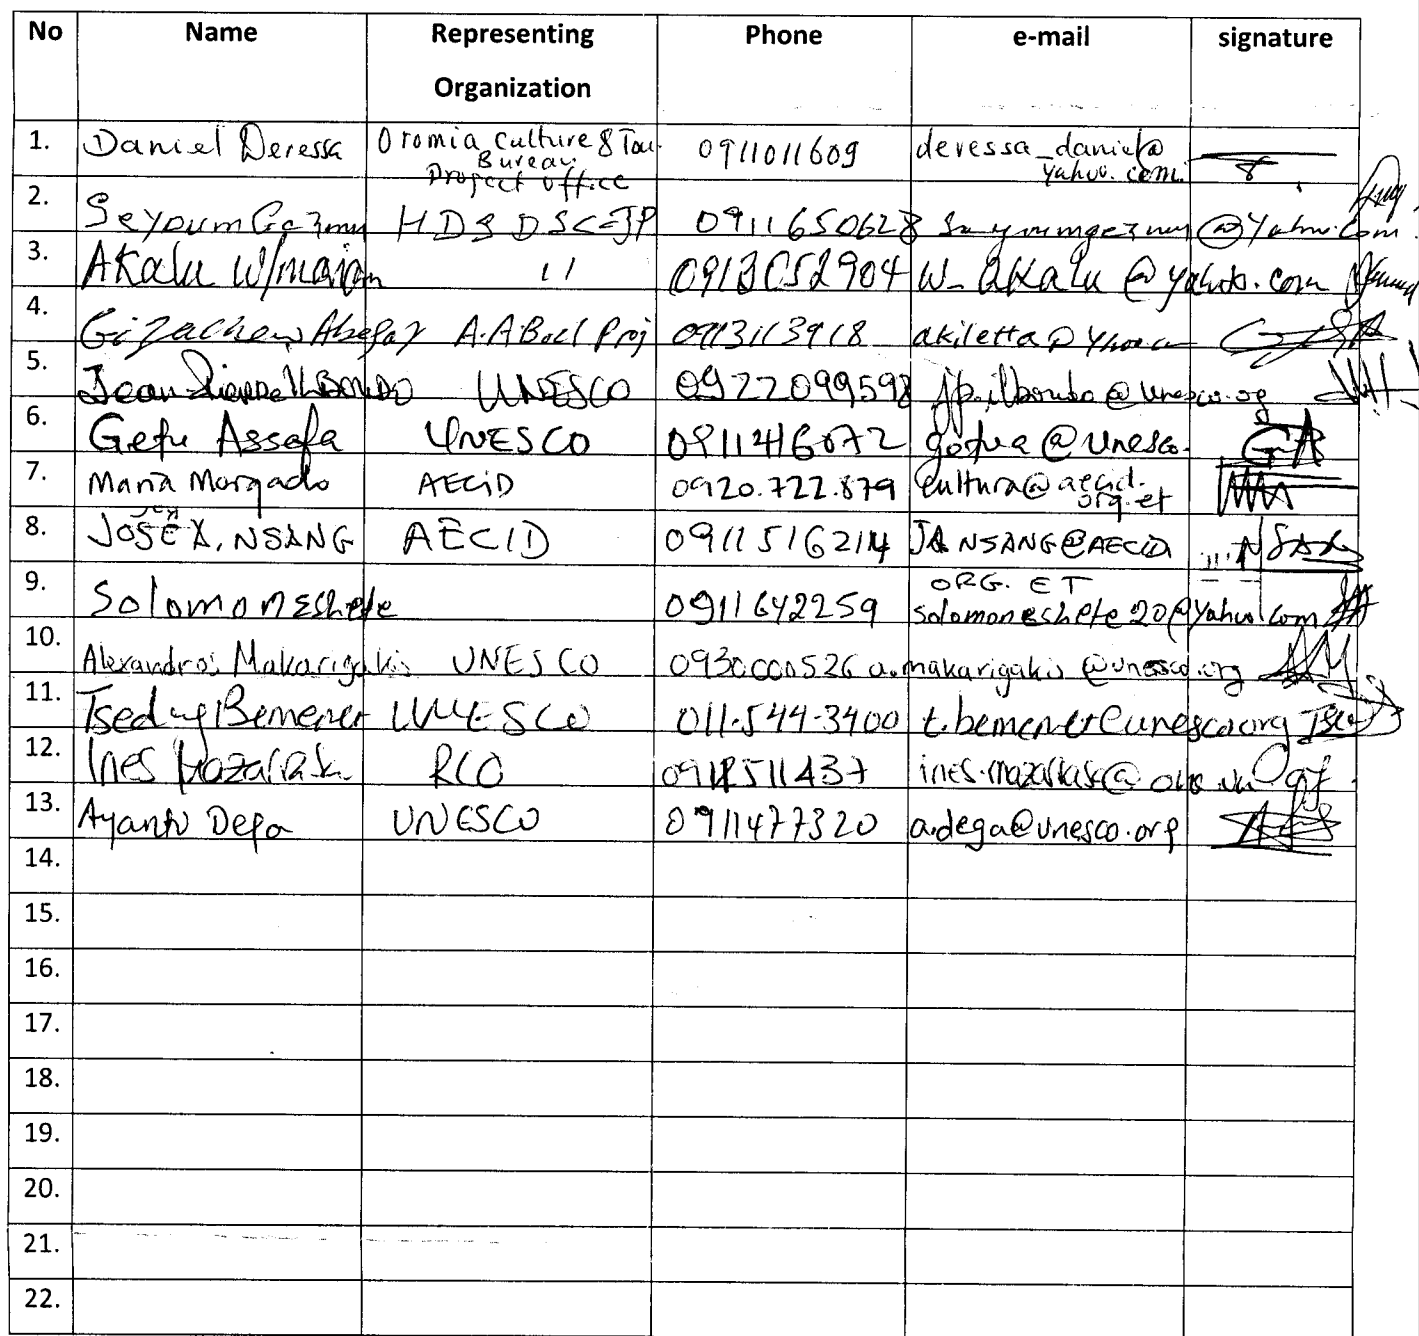 No Name Representing Organization Phone e-mail signature
1. Daniel Deressa Oromia Culture & Tou. Bureau Project office 0911011609 deressa_daniel@yahoo.com.
2. Seyoum HDSDSC-JP 0911650628 @Yahoo.com
3. Akalu W/mariam " 0913052904 w_akalu@yahoo.com
4. Gizachew Abegaz A.A BoCT Proj 0913113918 akiletta@
5. Jean Pierre Ilboudo UNESCO 0922099598 jp.ilboudo@unesco.og
6. Getu Assefa UNESCO 0911416072 @unesco.
7. Maria Morgado AECID 0920.722.879 cultura@aecid.org.et
8. JOSÉ A. NSANG AECID 0911516214 JANSANG@AECID ORG. ET
9. Solomon Eshete 0911642259 solomoneshete20@yahoo.com
10. Alexandros Makarigakis UNESCO 0930000526 a.makarigakis@unesco.org
11. Bemener UNESCO 011-544-3400 t.bemenet@unesco.org
12. Ines Mazarrasa RCO 0911511437
13. Ayantu Dega UNESCO 0911477320 a.dega@unesco.org
14.
15.
16.
17.
18.
19.
20.
21.
22.